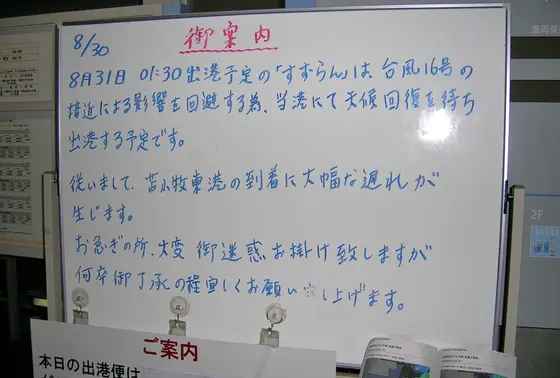 8/30
御案内
8月31日 01:30出港予定の「すずらん」は、台風16号の
接近による影響を回避する為、当港にて天候回復を待ち
出港する予定です。
従いまして、苫小牧東港の到着に大幅な遅れが
生じます。
お急ぎの所、大変御迷惑お掛け致しますが
何卒御了承の程宜しくお願い申し上げます。
ご案内
本日の出港便は
2F